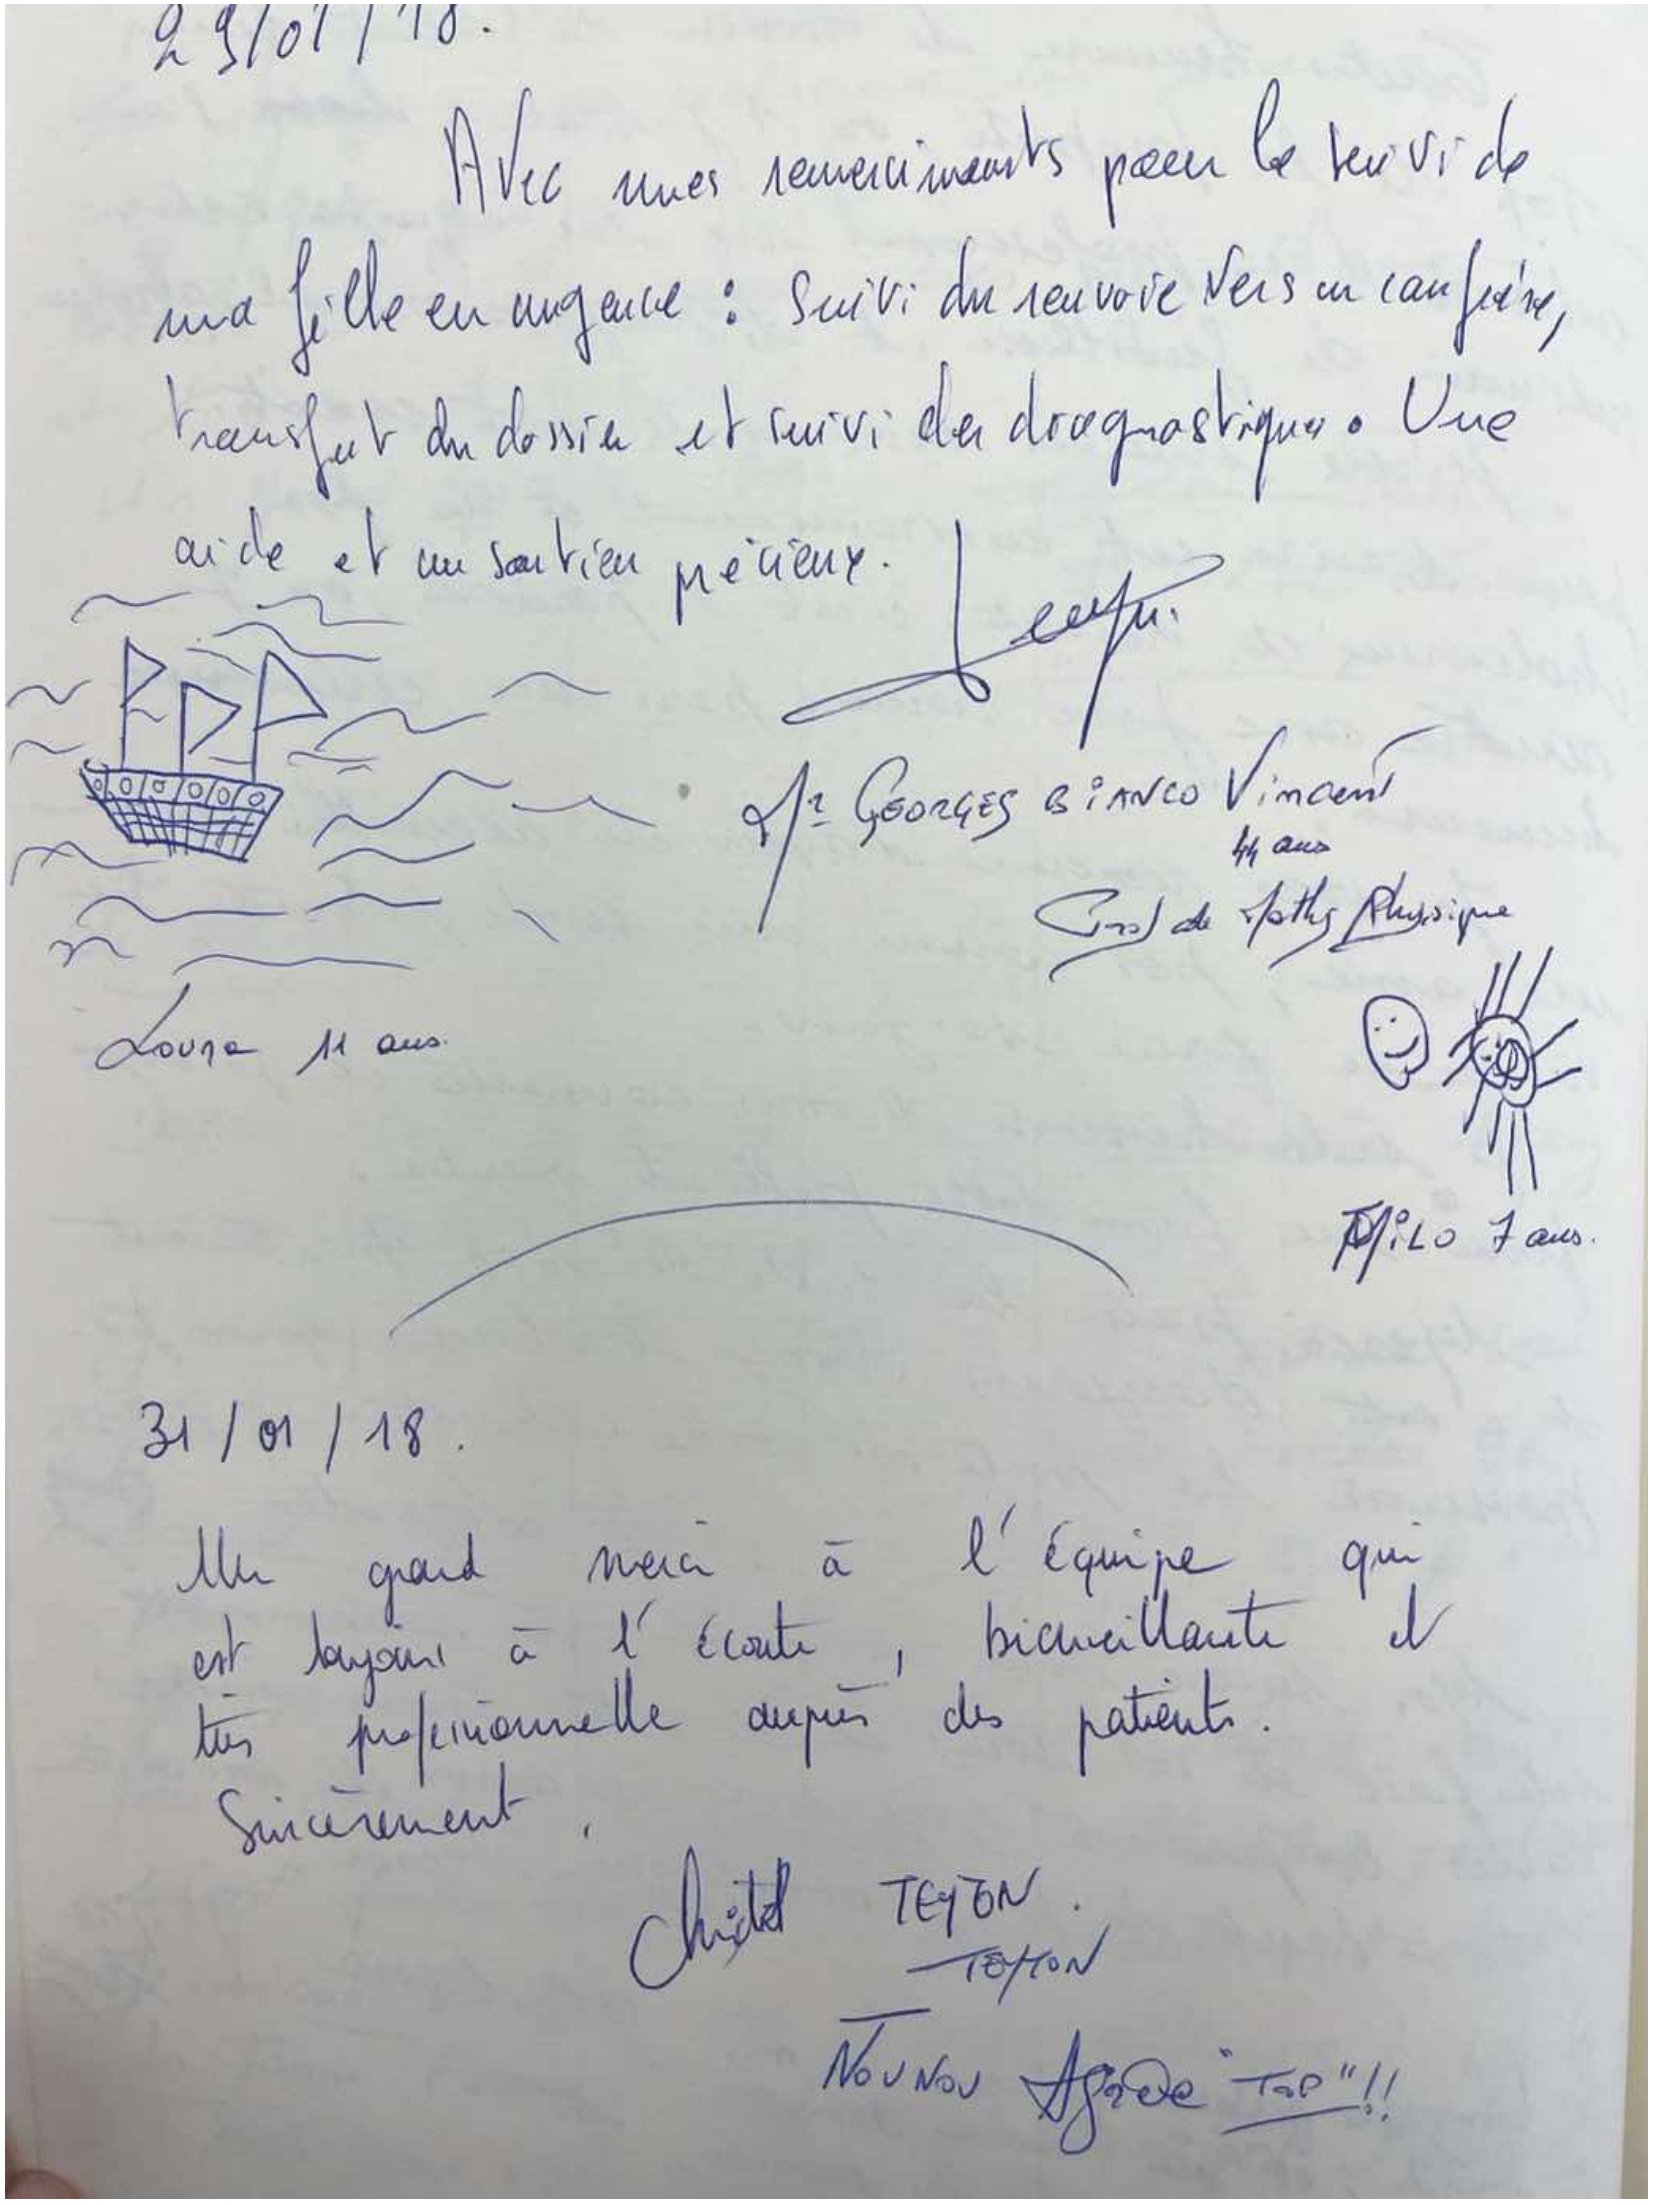 29/01/18.
Avec mes remerciments pour le suivi de
ma fille en urgence : Suivi du renvoie vers un confrère,
transfert du dossier et suivi des diagnostiques. Une
aide et un soutien précieux.
Mr GEORGES BIANCO Vincent
44 ans
Prof de Maths Physique
Loura 11 ans.
MiLO 7 ans.
31/01/18.
Un grand merci à l'équipe qui
est toujours à l'écoute, bienveillante et
très professionnelle auprès des patients.
Sincèrement,
Christel TEYTON.
TEYTON
NOUNOU Agréée "TOP"!!